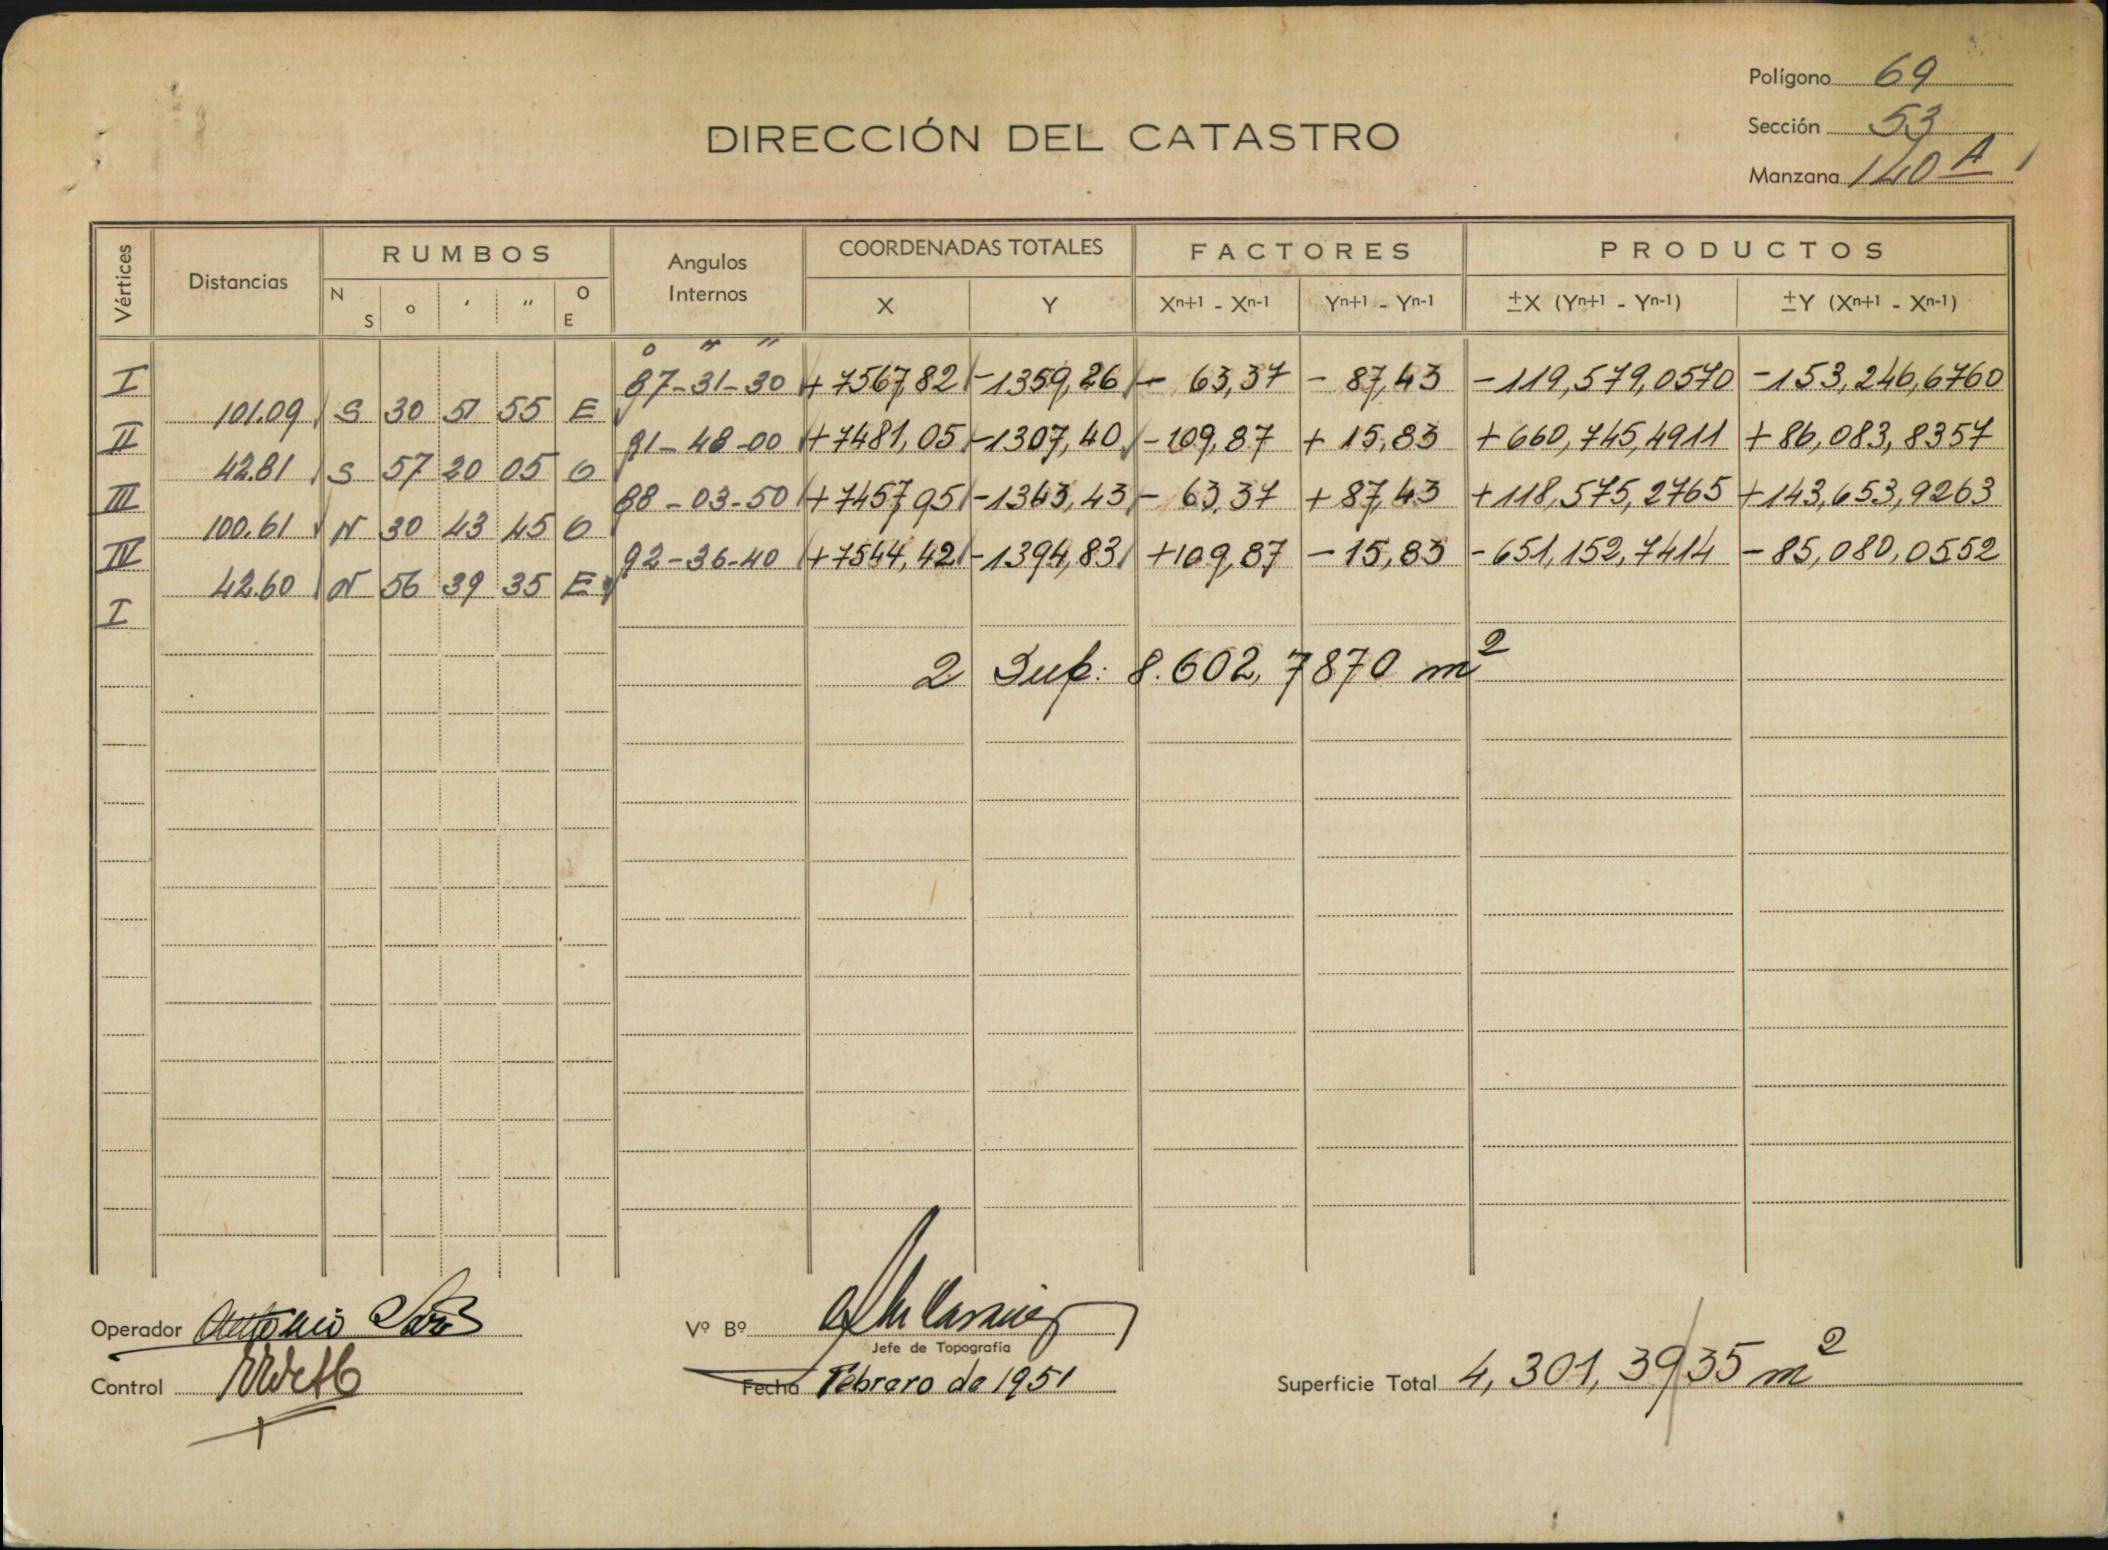 Polígono 69
Sección 53
Manzana 140 A
DIRECCIÓN DEL CATASTRO
Vértices Distancias RUMBOS Angulos Internos COORDENADAS TOTALES FACTORES PRODUCTOS
N S o ′ ″ O E X Y Xn+1 - Xn-1 Yn+1 - Yn-1 ±X (Yn+1 - Yn-1) ±Y (Xn+1 - Xn-1)
° ″ ″
I 87-31-30 +7567,82 -1359,26 - 63,37 - 87,43 -119,579,0570 -153,246,6760
101.09 S 30 51 55 E
II 91-48-00 +7481,05 -1307,40 -109,87 + 15,83 +660,745,4911 +86,083,8357
42.81 S 57 20 05 O
III 88-03-50 +7457,95 -1343,43 - 63,37 +87,43 +118,575,2765 +143,653,9263
100.61 N 30 43 45 O
IV 92-36-40 +7544,42 -1394,83 +109,87 -15,83 -651,152,7414 -85,080,0552
42.60 N 56 39 35 E
I
2 Sup: 8.602,7870 m2
Operador Antonio
Vº Bº
Jefe de Topografía
Control
Fecha Febrero de 1951
Superficie Total 4,301,3935 m2